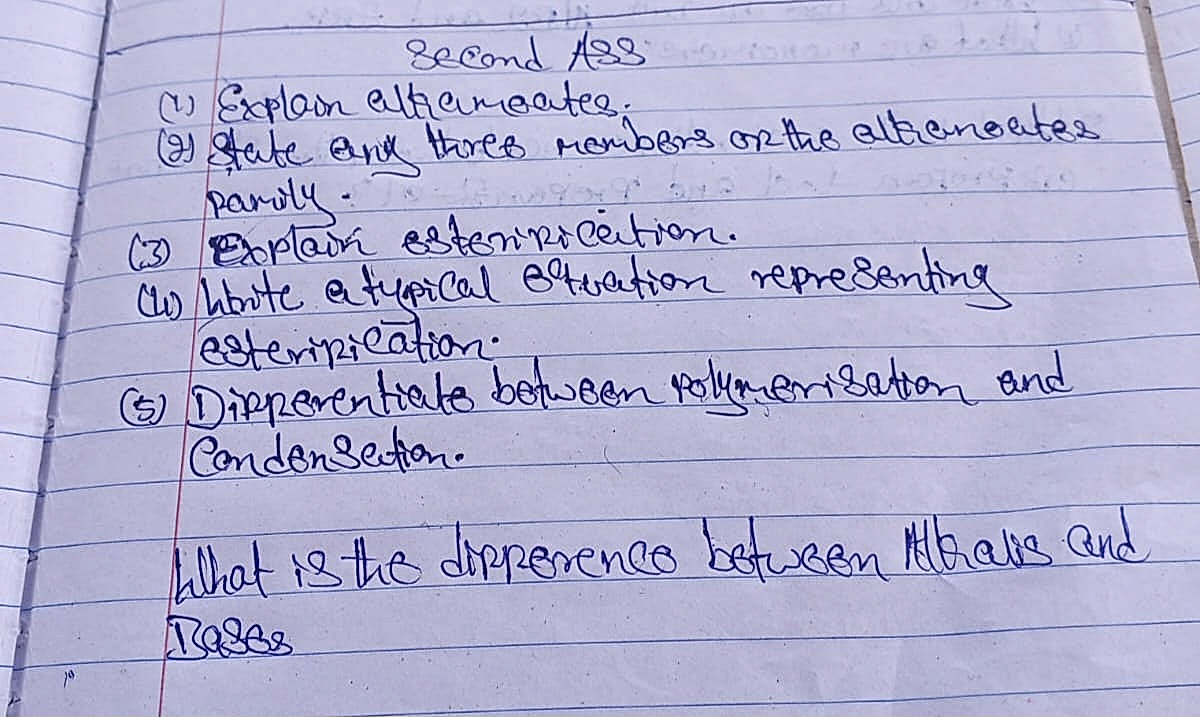 Second Ass
(1) Explain alkanoates.
(2) State any three members of the alkanoates
family.
(3) Explain esterification.
(4) Write a typical equation representing
esterification.
(5) Differentiate between polymerisation and
Condensation.
What is the difference between Alkalis and
Bases